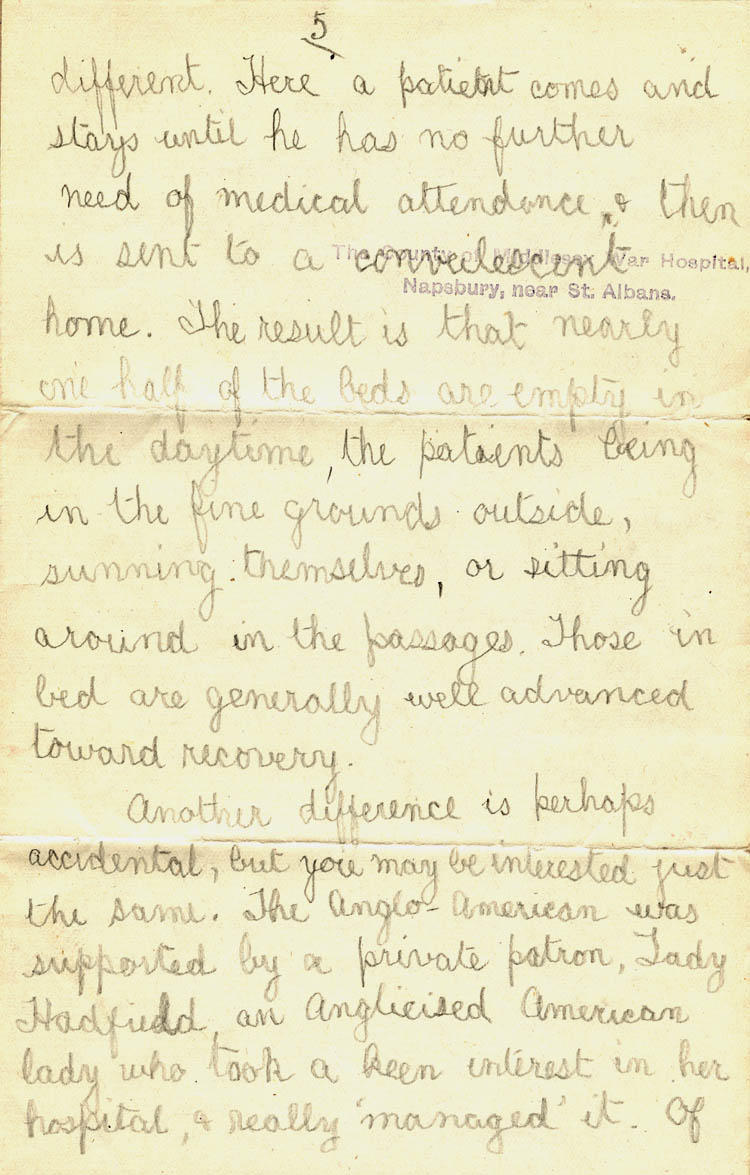 5
different. Here a patient comes and
stays until he has no further
need of medical attendance, & then
is sent to a convalescent
The County of Middlesex War Hospital,
Napsbury, near St. Albans.
home. The result is that nearly
one half of the beds are empty in
the daytime, the patients being
in the fine grounds outside,
sunning themselves, or sitting
around in the passages. Those in
bed are generally well advanced
toward recovery.
Another difference is perhaps
accidental, but you may be interested just
the same. The Anglo-American was
supported by a private patron, Lady
Hadfield, an Anglicised American
lady who took a keen interest in her
hospital, & really 'managed' it. Of